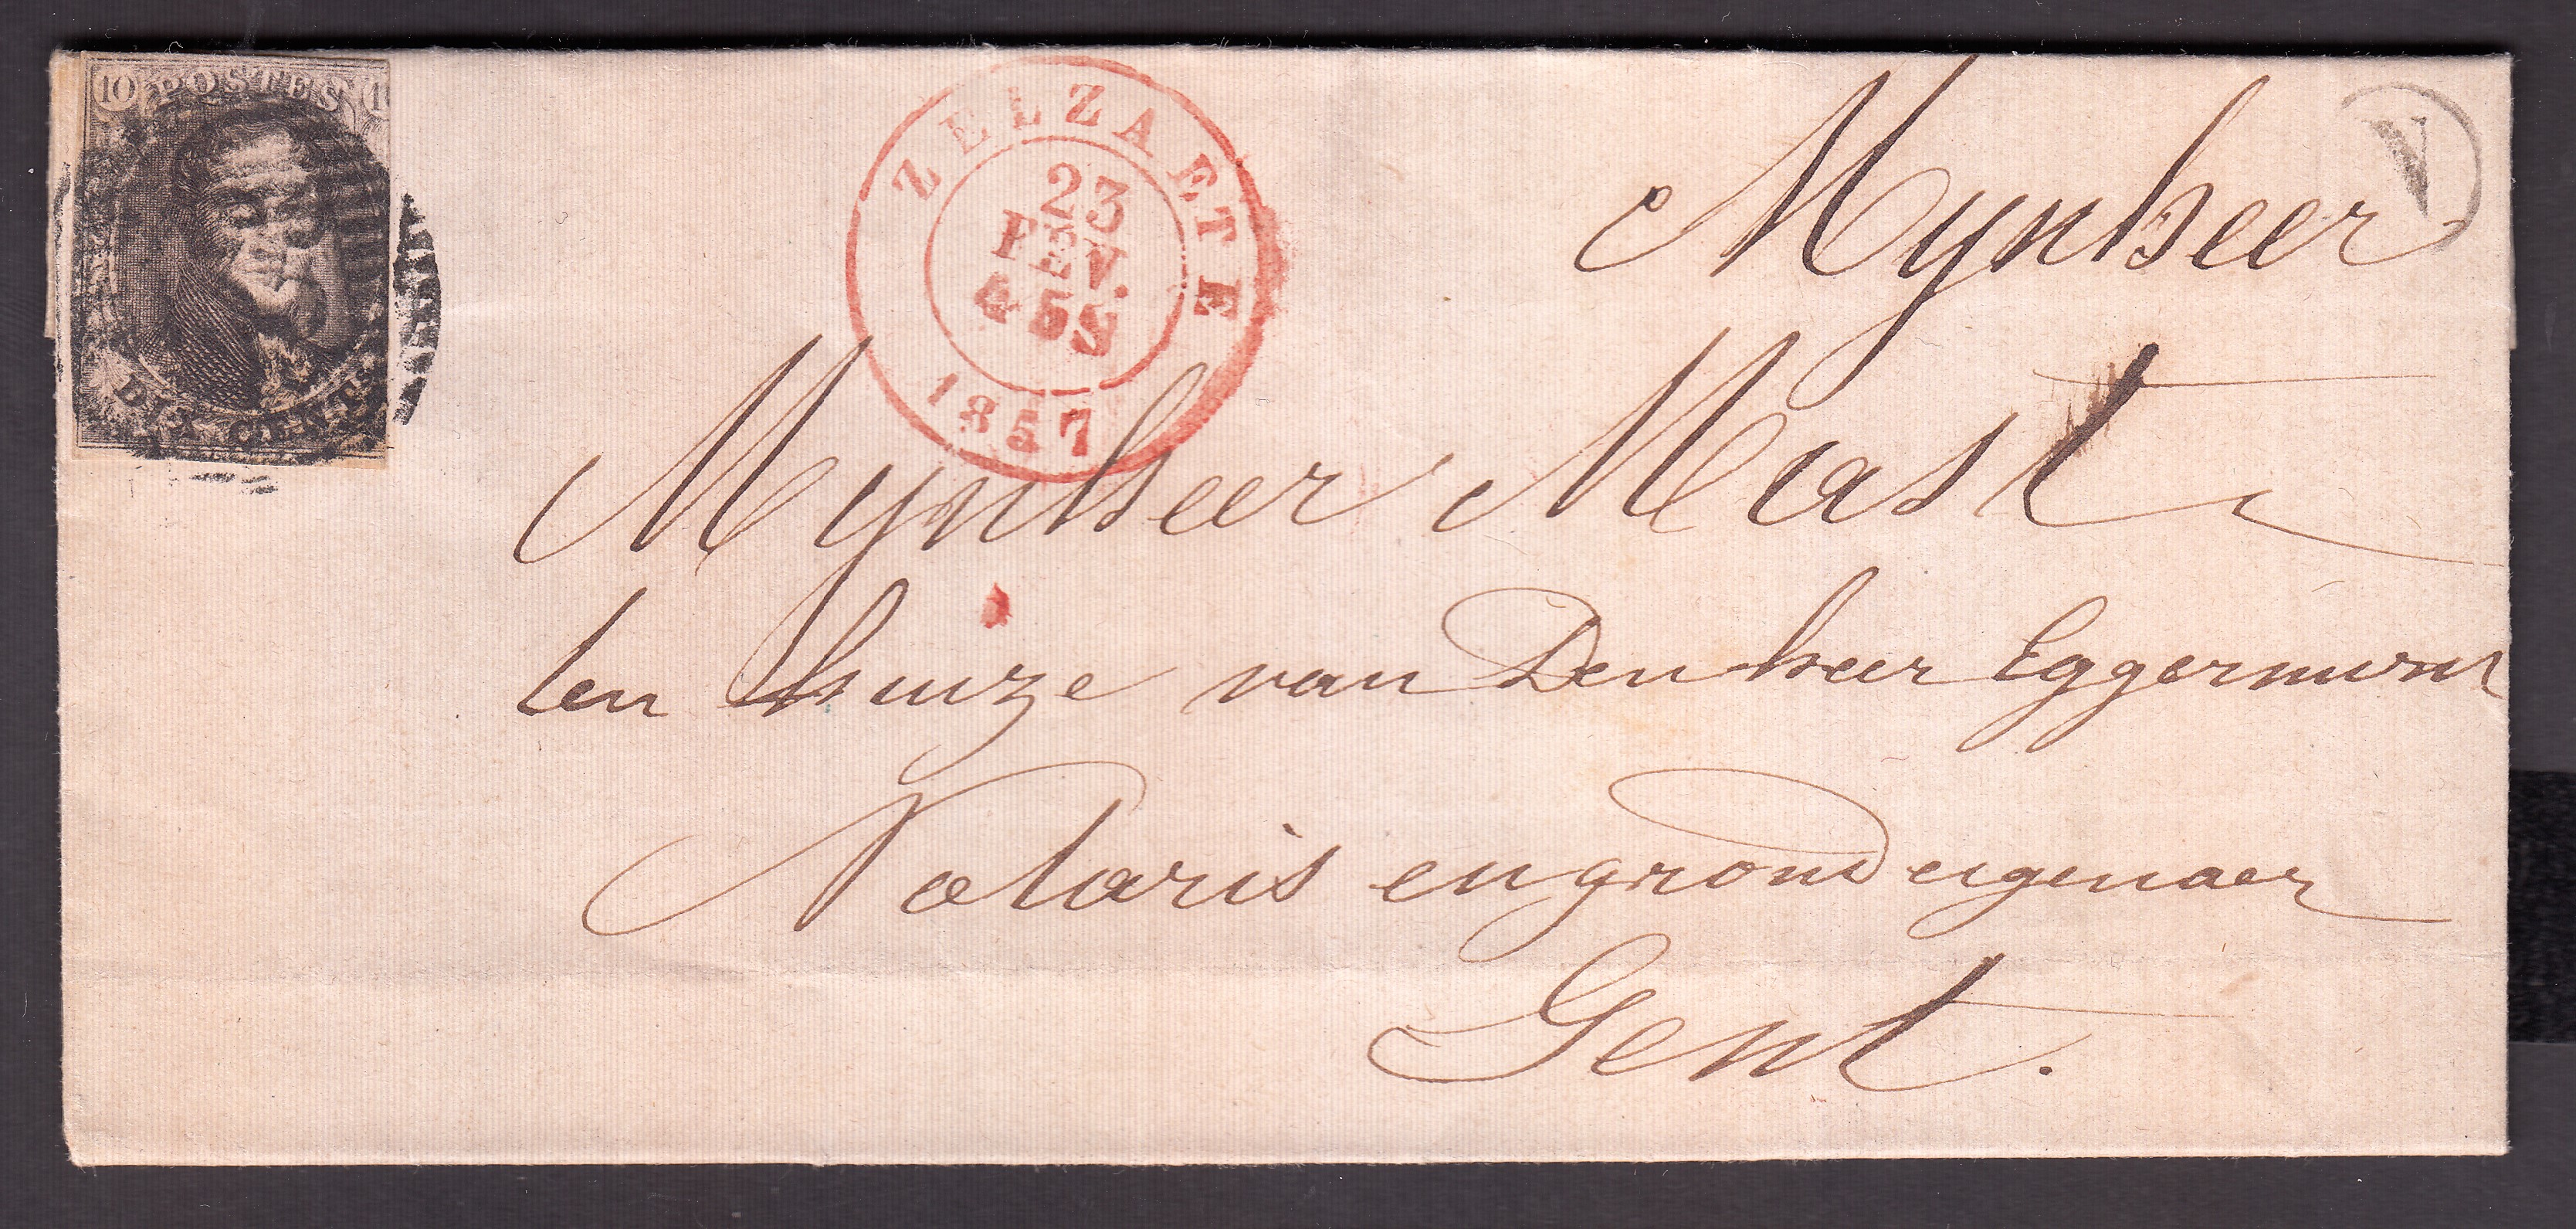 10 POSTES 1
DIX CENTS
ZELZAETE
23
FEV.
4-5S
1857
V
Mynheer
Mynheer Mast
ten huize van Den heer Eggermont
Notaris en grond eigenaer
Gent.